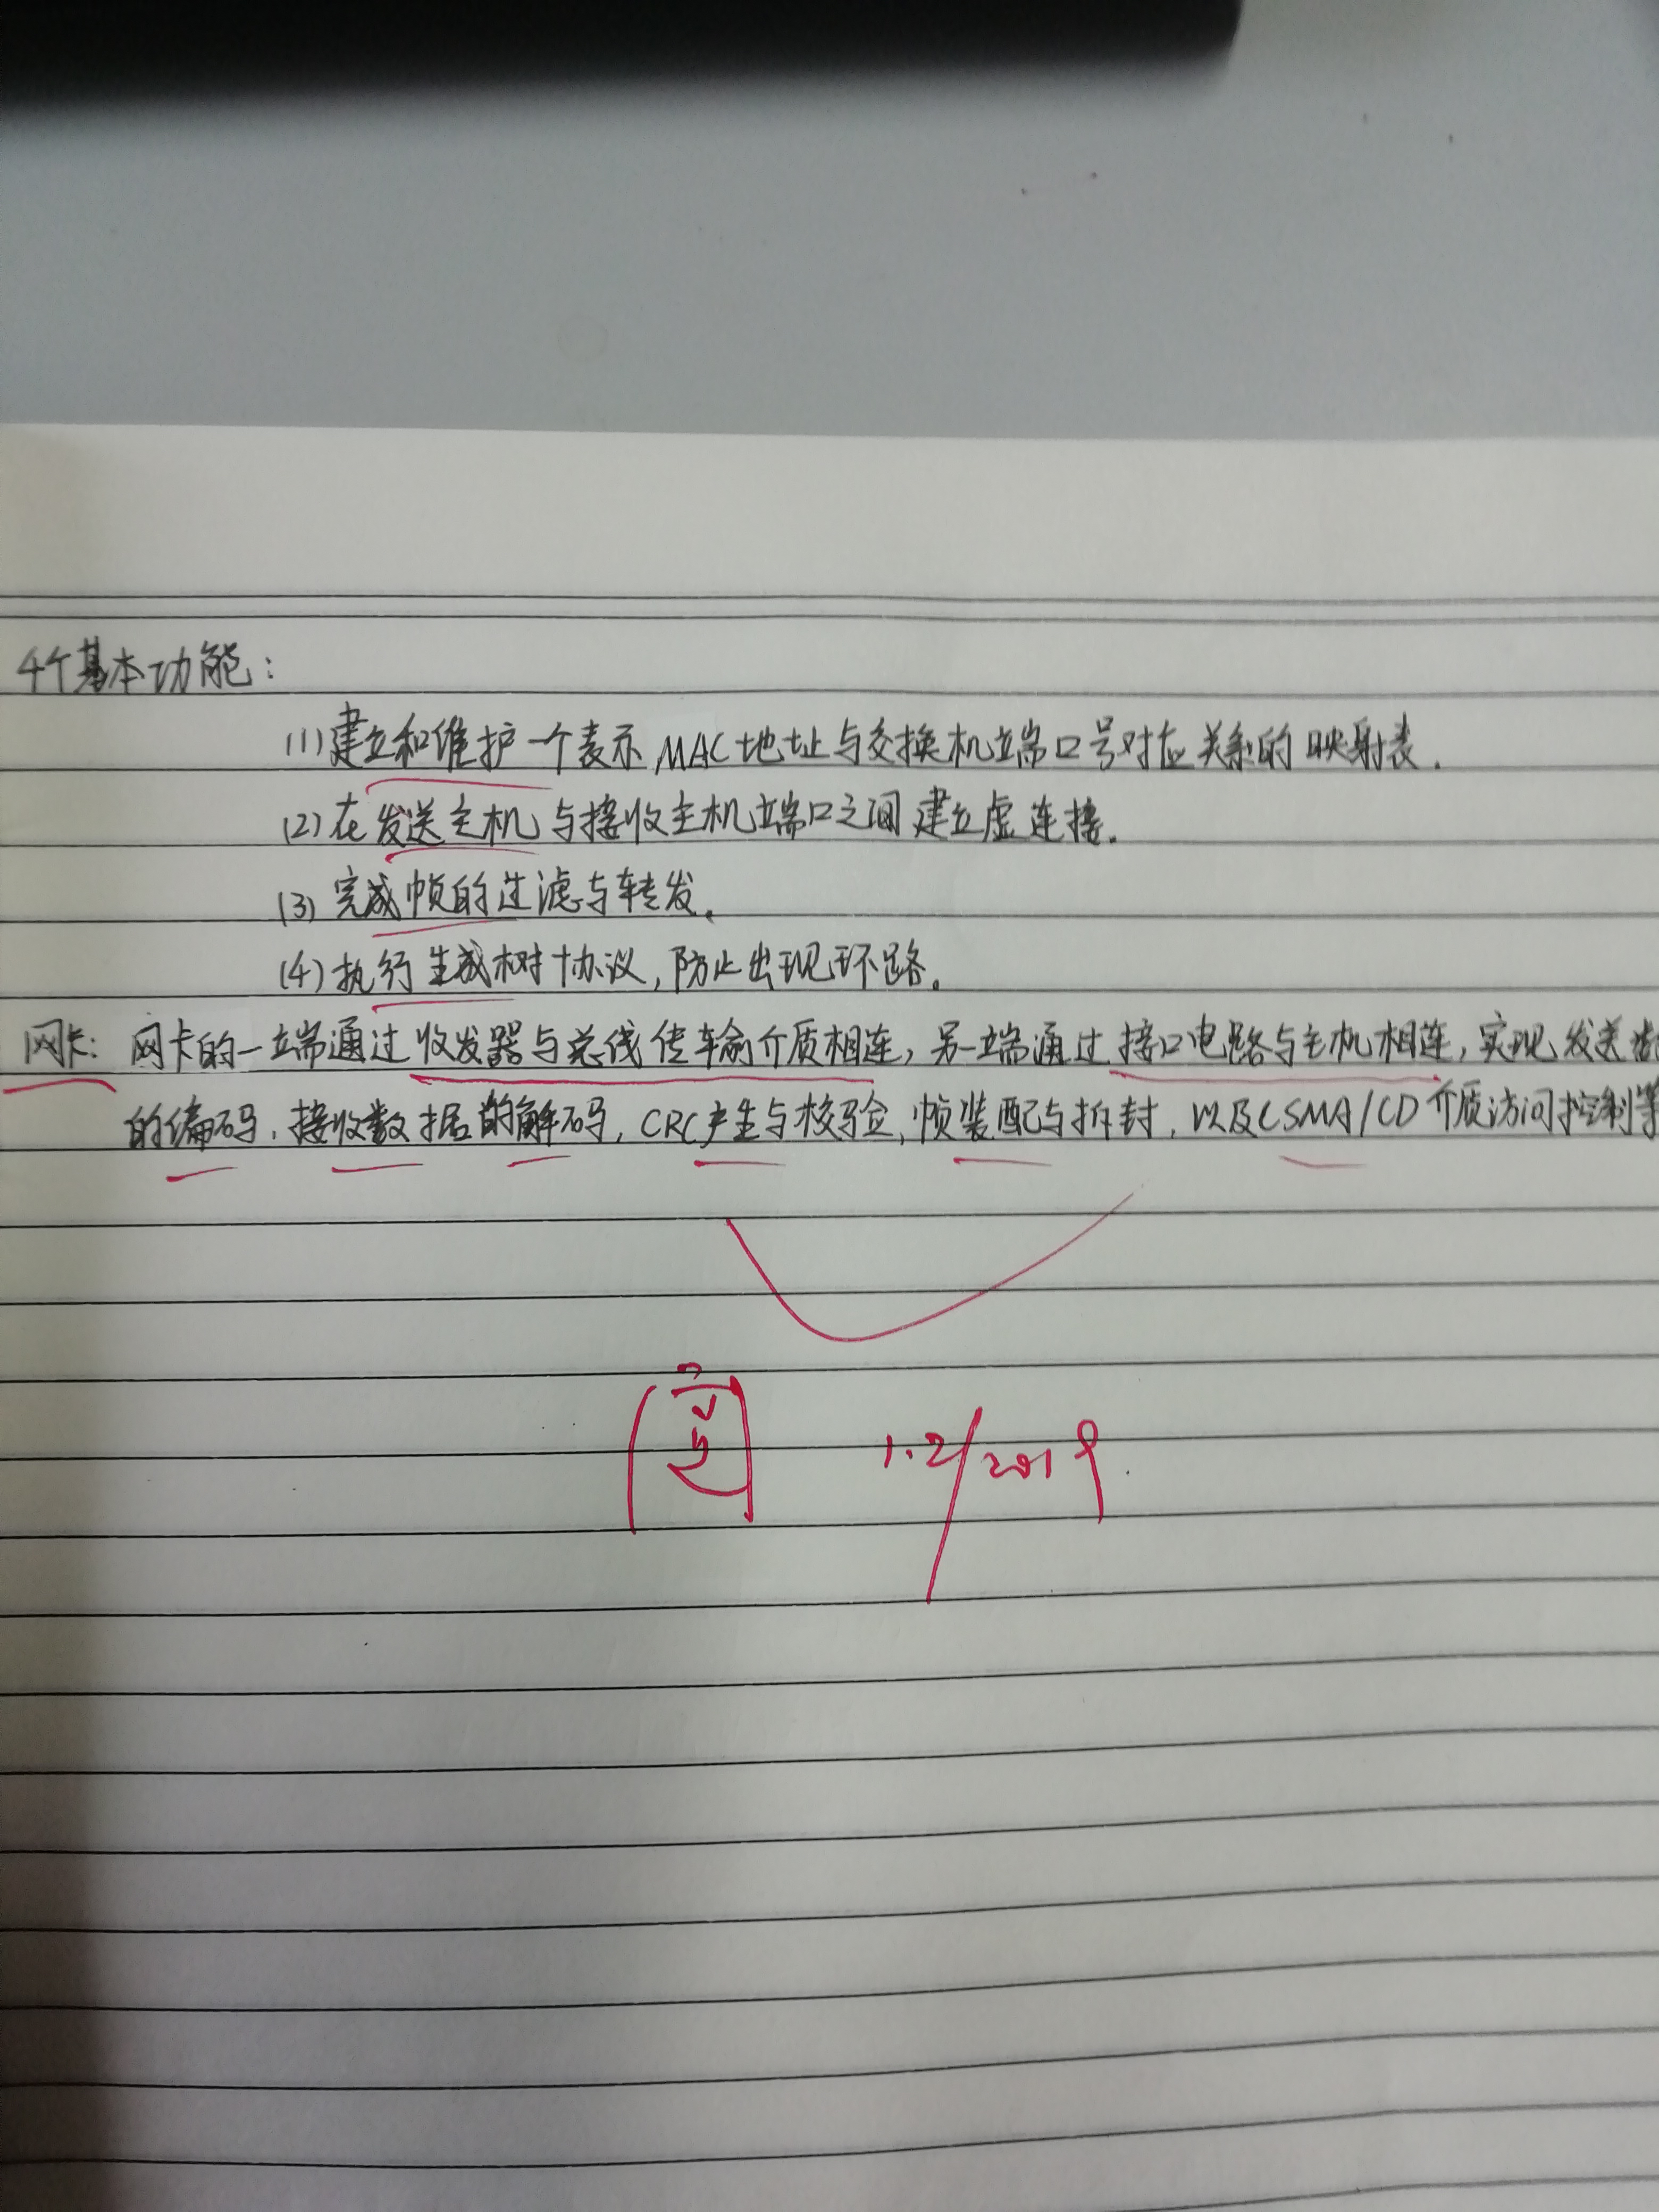 4个基本功能：
(1)建立和维护一个表示MAC地址与交换机端口号对应关系的映射表.
(2)在发送主机与接收主机端口之间建立虚连接.
(3)完成帧的过滤与转发。
(4)执行生成树协议,防止出现环路。
网卡：网卡的一端通过收发器与总线传输介质相连,另一端通过接口电路与主机相连,实现发送
的编码,接收数据的解码,CRC产生与校验,帧装配与拆封,以及CSMA/CD介质访问控制等
1.2/2019.